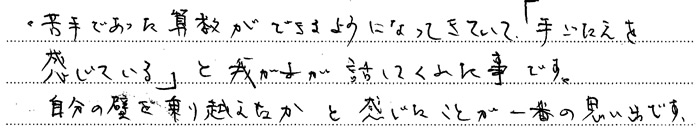 ・苦手であった算数ができるようになってきていて、「手ごたえを
感じている」と我が子が話してくれた事です。
自分の壁を乗り越えたかと感じたことが一番の思い出です。